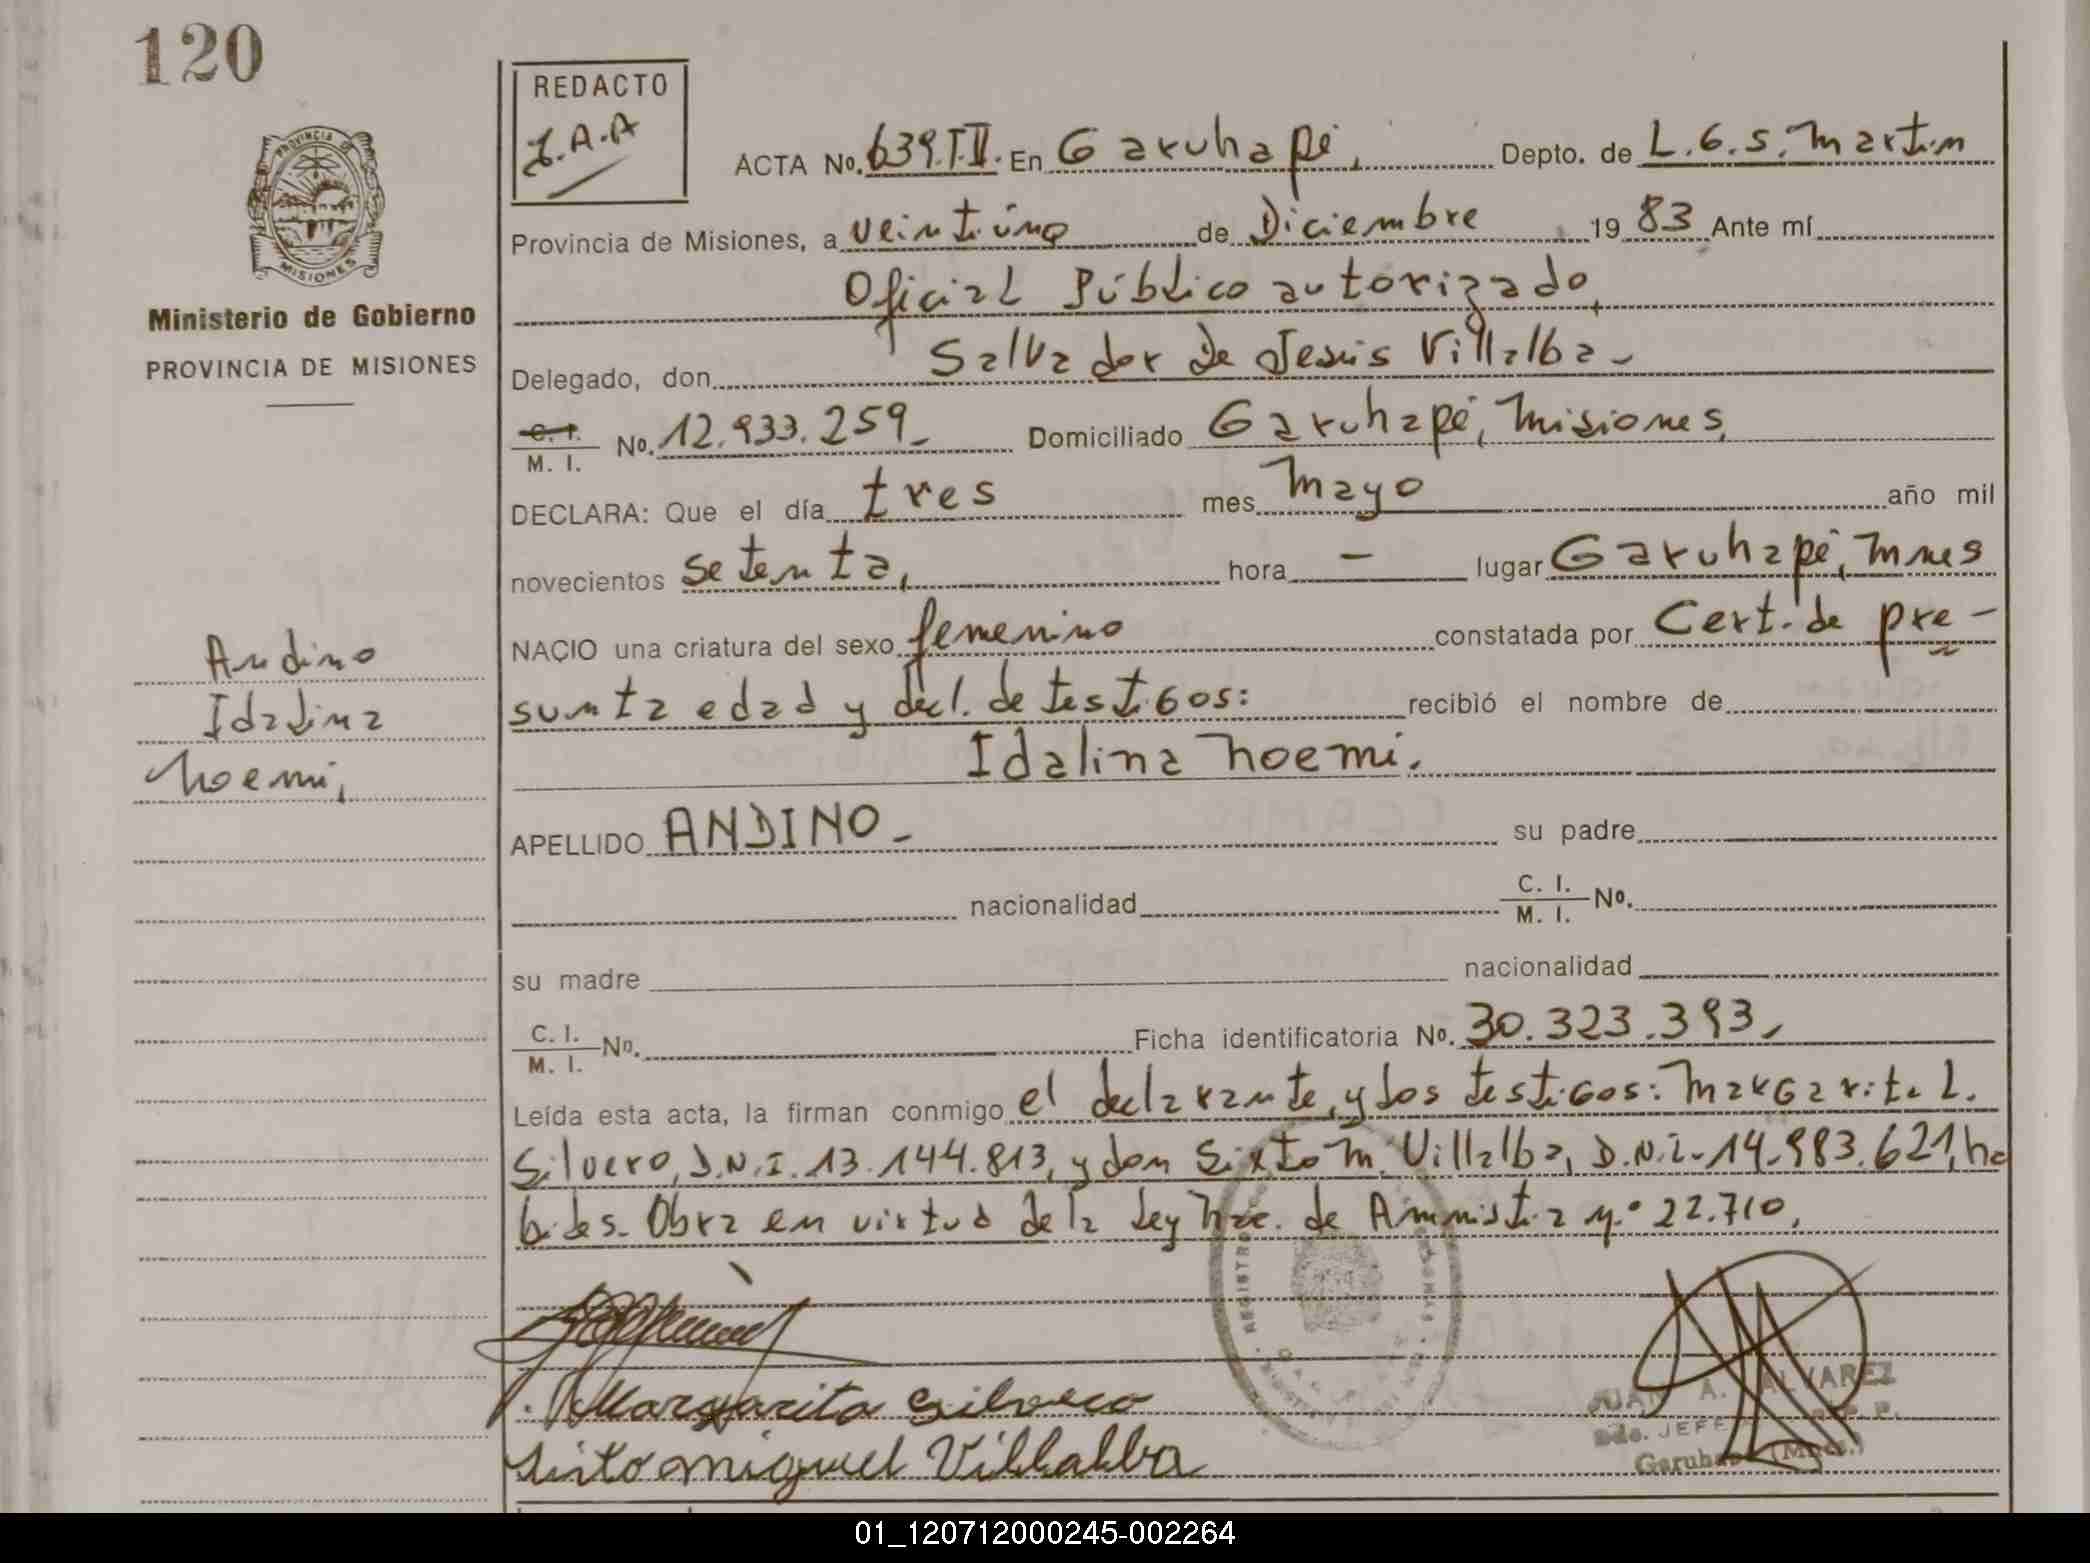 120
REDACTO
J.A.A
PROVINCIA D
MISIONES
Ministerio de Gobierno
PROVINCIA DE MISIONES
Andino
Idalina
Noemi,
ACTA No. 639.T.II. En Garuhapé, Depto. de L.G.S.Martin
Provincia de Misiones, a veintiuno de Diciembre 1983 Ante mí
Oficial Público autorizado,
Delegado, don Salvador De Jesús Villalba-
C. I. / M. I. No. 12.933.259_ Domiciliado Garuhapé, Misiones,
DECLARA: Que el día tres mes Mayo año mil
novecientos setenta, hora - lugar Garuhapé, Mnes
NACIO una criatura del sexo femenino constatada por Cert. de pre-
sunta edad y decl. de testigos: recibió el nombre de
Idalina Noemi.
APELLIDO ANDINO- su padre
nacionalidad C. I. / M. I. No.
su madre nacionalidad
C. I. / M. I. No. Ficha identificatoria No. 30.323.393,
Leída esta acta, la firman conmigo el declarante, y los testigos: Margarita L.
Silvero, D.N.I. 13.144.813, y don Sixto M. Villalba, D.N.I. 14.983.621, há
biles. Obra en virtud de la Ley Nac. de Amnistia n.º 22.710,
Margarita Silvero
Sixto Miguel Villalba
REGISTRO
JUAN A. ALVAREZ
JEFE
(Mnes.)
01_120712000245-002264